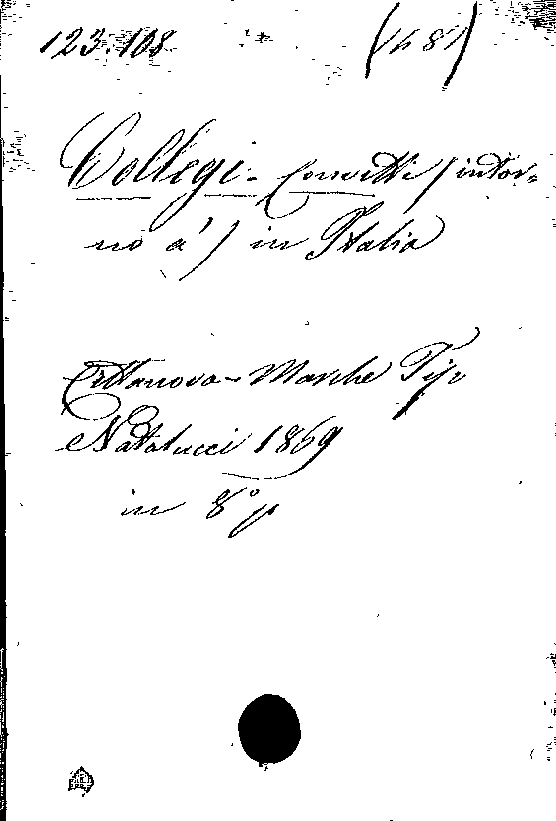 123.108 (1681)
Collegi-Convitti (intor=
no a') in Italia
Cittanova-Marche Tip
Natalucci 1869
in 8° p